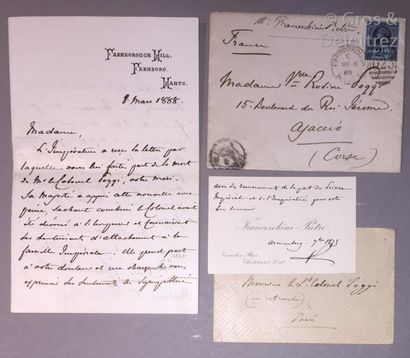 Farnborough Hill,
Farnboro,
Hants.
8 Mars 1888.
Madame,
L'Impératrice a reçu la lettre par
laquelle vous lui faites part de la mort
de Mr le Colonel Poggi, votre mari.
Sa Majesté a appris cette nouvelle avec
peine. Sachant combien le Colonel avait
été dévoué à l'Empereur et connaissant
ses sentiments d'attachement à la
famille Impériale. Elle prend part
à votre douleur et me charge de vous
exprimer ses sentiments de sympathie
Gros & Delettrez
Mr Franceschini Pietri
France
Madame Vve Rosine Poggi
15 Boulevard du Roi Jérome
Ajaccio
(Corse)
avec du du Prince
Impérial et de l'Impératrice pour votre
bon souvenir
Franceschini Pietri
1873
Camden Place
Chislehurst, Kent
Monsieur le Lt Colonel Poggi
Paris